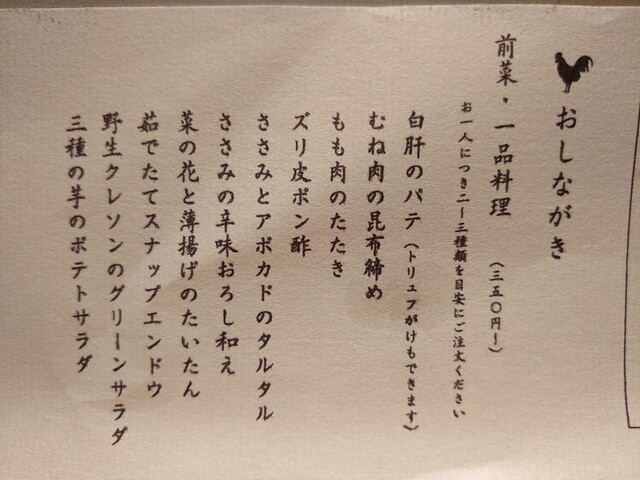 おしながき
前菜・一品料理 (三五〇円～)
お一人につき二～三種類を目安にご注文ください
白肝のパテ (トリュフがけもできます)
むね肉の昆布締め
もも肉のたたき
ズリ皮ポン酢
ささみとアボカドのタルタル
ささみの辛味おろし和え
菜の花と薄揚げのたいたん
茹でたてスナップエンドウ
野生クレソンのグリーンサラダ
三種の芋のポテトサラダ